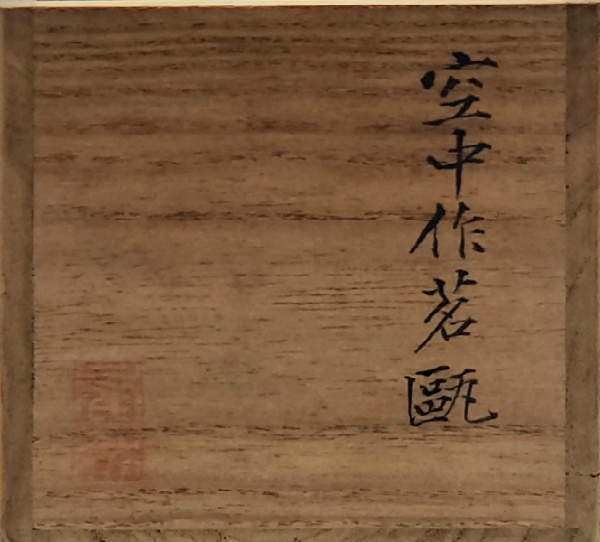 空中作茗甌